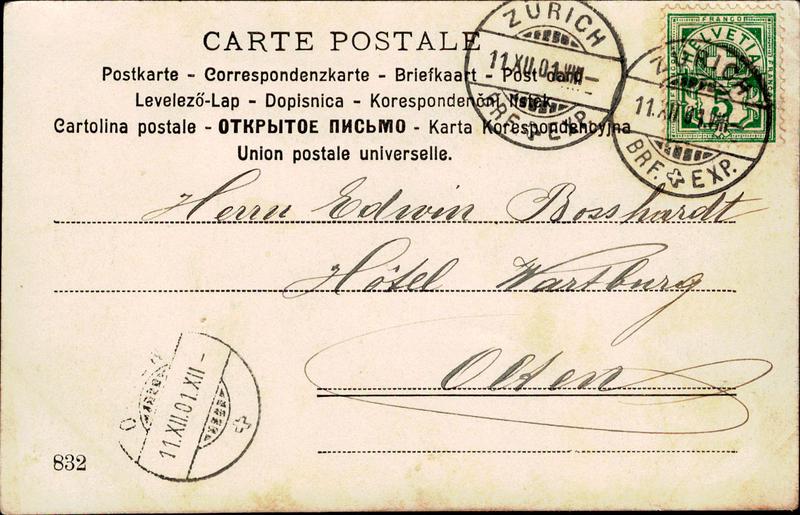 CARTE POSTALE
Postkarte - Correspondenzkarte - Briefkaart - Post card
Levelező-Lap - Dopisnica - Korespondenční lístek
Cartolina postale - ОТКРЫТОЕ ПИСЬМО - Karta Korespondencyjna
Union postale universelle.
ZÜRICH
11.XII.01.VIII-
BRF. EXP.
FRANCO
HELVETIA
5
ZÜRICH
11.XII.01.VIII-
BRF. EXP.
Herrn Edwin Bosshardt
Hôtel Wartburg
Olten
11.XII.01.XII-
832